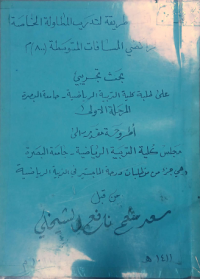 طريقة لتدريب المطاولة الخاصة
راكضي المسافات المتوسطة
بحث تجريبي
على طلبة كلية التربية الرياضية - جامعة البصرة
المرحلة الاولى
أطروحة مقدمة الى
مجلس كلية التربية الرياضية - جامعة البصرة
وهي جزء من متطلبات درجة الماجستير في التربية الرياضية
من قبل
سعد نافع الشيخلي
١٤١١ هـ